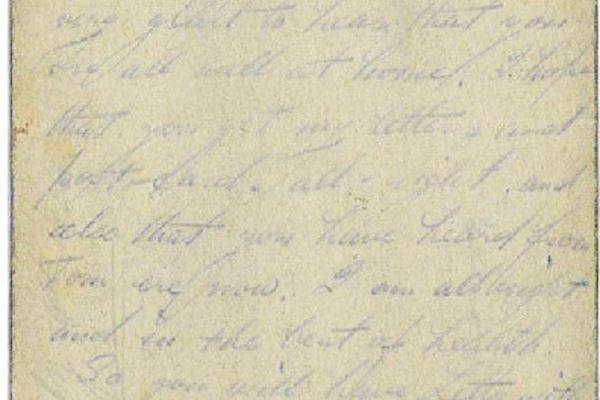 very glad to hear that you
are all well at home. I hope
that you get my letters and
post-Cards all-right, and
also that you have heard from
Tom ere now. I am allright
and in the best of health
So you will have